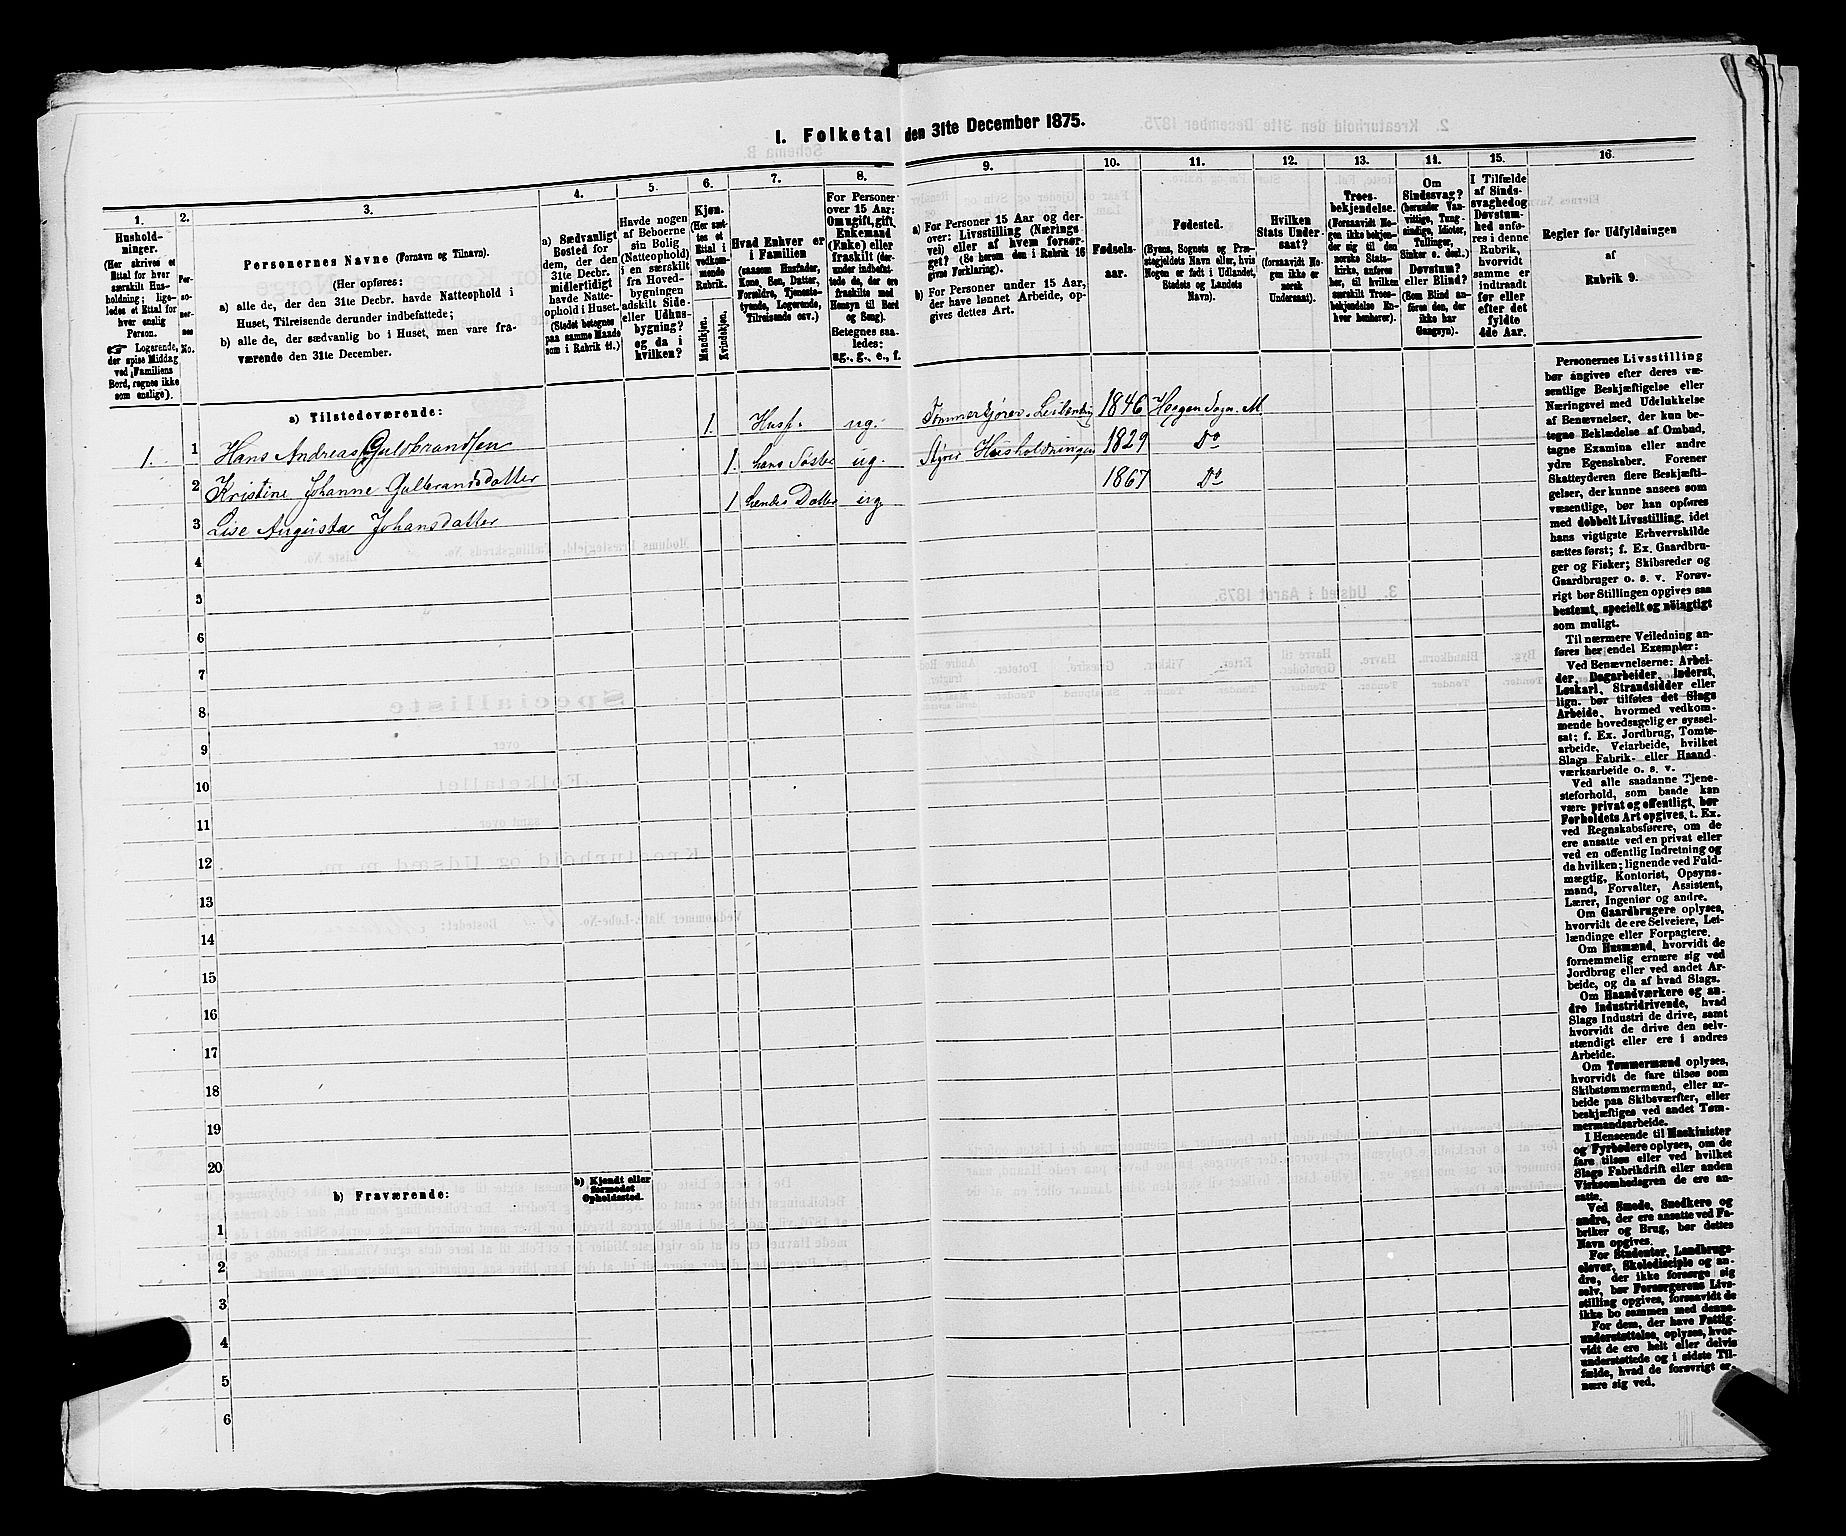 I. Folketal den 31te December 1875.
1.
Hushold-
ninger.
(Her skrives et
Ettal for hver
særskilt Hus-
holdning; lige-
ledes et Ettal for
hver enslig
Person.
Logerende,
der spise Middag
ved Familiens
Bord, regnes ikke
som enslige).
2.
Per-
so-
ner-
nes
No.
3.
Personernes Navne (Fornavn og Tilnavn).
(Her opføres:
a) alle de, der den 31te Decbr. havde Natteophold i
Huset, Tilreisende derunder indbefattede;
b) alle de, der sædvanlig bo i Huset, men vare fra-
værende den 31te December.
4.
a) Sædvanligt
Bosted for
dem, der den
31te Decbr.
midlertidigt
havde Natte-
ophold i Huset.
(Stedet betegnes
paa samme Maade
som i Rubrik 11.)
5.
Havde nogen
af Beboerne
sin Bolig
(Natteophold)
i en særskilt
fra Hoved-
bygningen
adskilt Side-
eller Udhus-
bygning?
og da i
hvilken?
6.
Kjøn.
(Her sæt-
tes et
Ettal i
vedkom-
mende
Rubrik.
Mandkjøn.
Kvindekjøn.
7.
Hvad Enhver er
i Familien
(saasom Husfader,
Kone, Søn, Datter,
Forældre, Tjeneste-
tyende, Logerende,
Tilreisende osv.)
8.
For Personer
over 15 Aar:
Om ugift, gift,
Enkemand
(Enke) eller
fraskilt (der-
under indbefat-
tede de, der ere
fraskilte med
Hensyn til Bord
og Seng).
Betegnes saa-
ledes:
ug., g., e., f.
9.
a) For Personer 15 Aar og der-
over: Livsstilling (Nærings
vei) eller af hvem forsør-
get? (Se herom den i Rubrik 16
givne Forklaring).
b) For Personer under 15 Aar,
der have lønnet Arbeide, op-
gives dettes Art.
10.
Fødsels-
aar.
11.
Fødested.
(Byens, Sognets og Præ-
stegjeldets Navn eller, hvis
Nogen er født i Udlandet,
Stedets og Landets
Navn).
12.
Hvilken
Stats Under-
saat?
(forsaavidt No-
gen ikke er
norsk
Undersaat).
13.
Troes-
bekjendelse.
(Forsaavidt No-
gen ikke bekjen-
der sig til den
norske Stats-
kirke, anføres
her, til hvilken
særskilt Troes-
bekjendelse En-
hver henhører).
14.
Om
Sindssvag?
(herunder Van-
vittige, Tung-
sindige, Idioter,
Tullinger,
Sinker o. desl.).
Døvstum?
eller Blind?
(Som Blind an-
føres den, der
ikke har
Gangsyn).
15.
I Tilfælde
af Sinds-
svaghed og
Døvstum-
hed anfø-
res i denne
Rubrik,
hvorvidt
samme er
indtraadt
før eller
efter det
fyldte
4de Aar.
16.
Regler for Udfyldningen
af
Rubrik 9.
a) Tilstedeværende:
1. 1 Hans Andreas Guldbrandsen 1. Husf. ug. Tømmerkjører & Leilending 1846 Heggen Sogn. M
2 Kristine Johanne Gulbrandsdatter 1. hans Søster ug. Styrer Husholdningen 1829 Do
3 Lise Augusta Johansdatter 1 hendes Datter ug 1867 Do
4
5
6
7
8
9
10
11
12
13
14
15
16
17
18
19
20
b) Fraværende:
b) Kjendt eller
formodet
Opholdssted.
1
2
3
4
5
6
Personernes Livsstilling
bør angives efter deres væ-
sentlige Beskjæftigelse eller
Næringsvei med Udelukkelse
af Benævnelser, der kun be-
tegne Beklædelse af Ombud,
tagne Examina eller andre
ydre Egenskaber. Forener
Skatteyderen flere Beskjæfti-
gelser, der kunne ansees som
væsentlige, bør han opføres
med dobbelt Livsstilling, idet
hans vigtigste Erhvervskilde
sættes først; f. Ex. Gaardbru-
ger og Fisker; Skibsreder og
Gaardbruger o. s. v. Forøv-
rigt bør Stillingen opgives saa
bestemt, specielt og nöiagtigt
som muligt.
Til nærmere Veiledning an-
føres her endel Exempler:
Ved Benævnelserne: Arbei-
der, Dagarbeider, Inderst,
Løskarl, Strandsidder eller
lign. bør tilføies det Slags
Arbeide, hvormed vedkom-
mende hovedsagelig er syssel-
sat; f. Ex. Jordbrug, Tomte-
arbeide, Veiarbeide, hvilket
Slags Fabrik- eller Haand-
værksarbeide o. s. v.
Ved alle saadanne Tjene-
steforhold, som baade kan
være privat og offentligt, bør
Forholdets Art opgives, t. Ex.
ved Regnskabsførere, om de
ere ansatte ved en privat eller
ved en offentlig Indretning og
da hvilken; lignende ved Fuld-
mægtig, Kontorist, Opsyns-
mand, Forvalter, Assistent,
Lærer, Ingeniør og andre.
Om Gaardbrugere oplyses,
hvorvidt de ere Selveiere, Lei-
lændinge eller Forpagtere.
Om Husmænd, hvorvidt de
fornemmelig ernære sig ved
Jordbrug eller ved andet Ar-
beide, og da af hvad Slags.
Om Haandværkere og an-
dre Industridrivende, hvad
Slags Industri de drive, samt
hvorvidt de drive den selv-
stændigt eller ere i andres
Arbeide.
Om Tømmermænd oplyses,
hvorvidt de fare tilsøs som
Skibstømmermænd, eller ar-
beide paa Skibsværfter, eller
beskjæftiges ved andet Tøm-
mermandsarbeide.
I Henseende til Maskinister
og Fyrbødere oplyses, om de
fare tilsøs eller ved hvilket
Slags Fabrikdrift eller anden
Virksomhedsgren de ere an-
satte.
Ved Smede, Snedkere og
andre, der ere ansatte ved Fa-
briker og Brug, bør dettes
Navn opgives.
For Studenter, Landbrugs-
elever, Skoledisciple og an-
dre, der ikke forsørge sig
selv, bør Forsørgerens Livs-
stilling opgives, forsaavidt de
ikke bo sammen med denne.
For dem, der have Fattig-
understøttelse, oplyses, hvor-
vidt de ere helt eller delvis
understøttede og i sidste Til-
fælde, hvad de forøvrigt er-
nære sig ved.